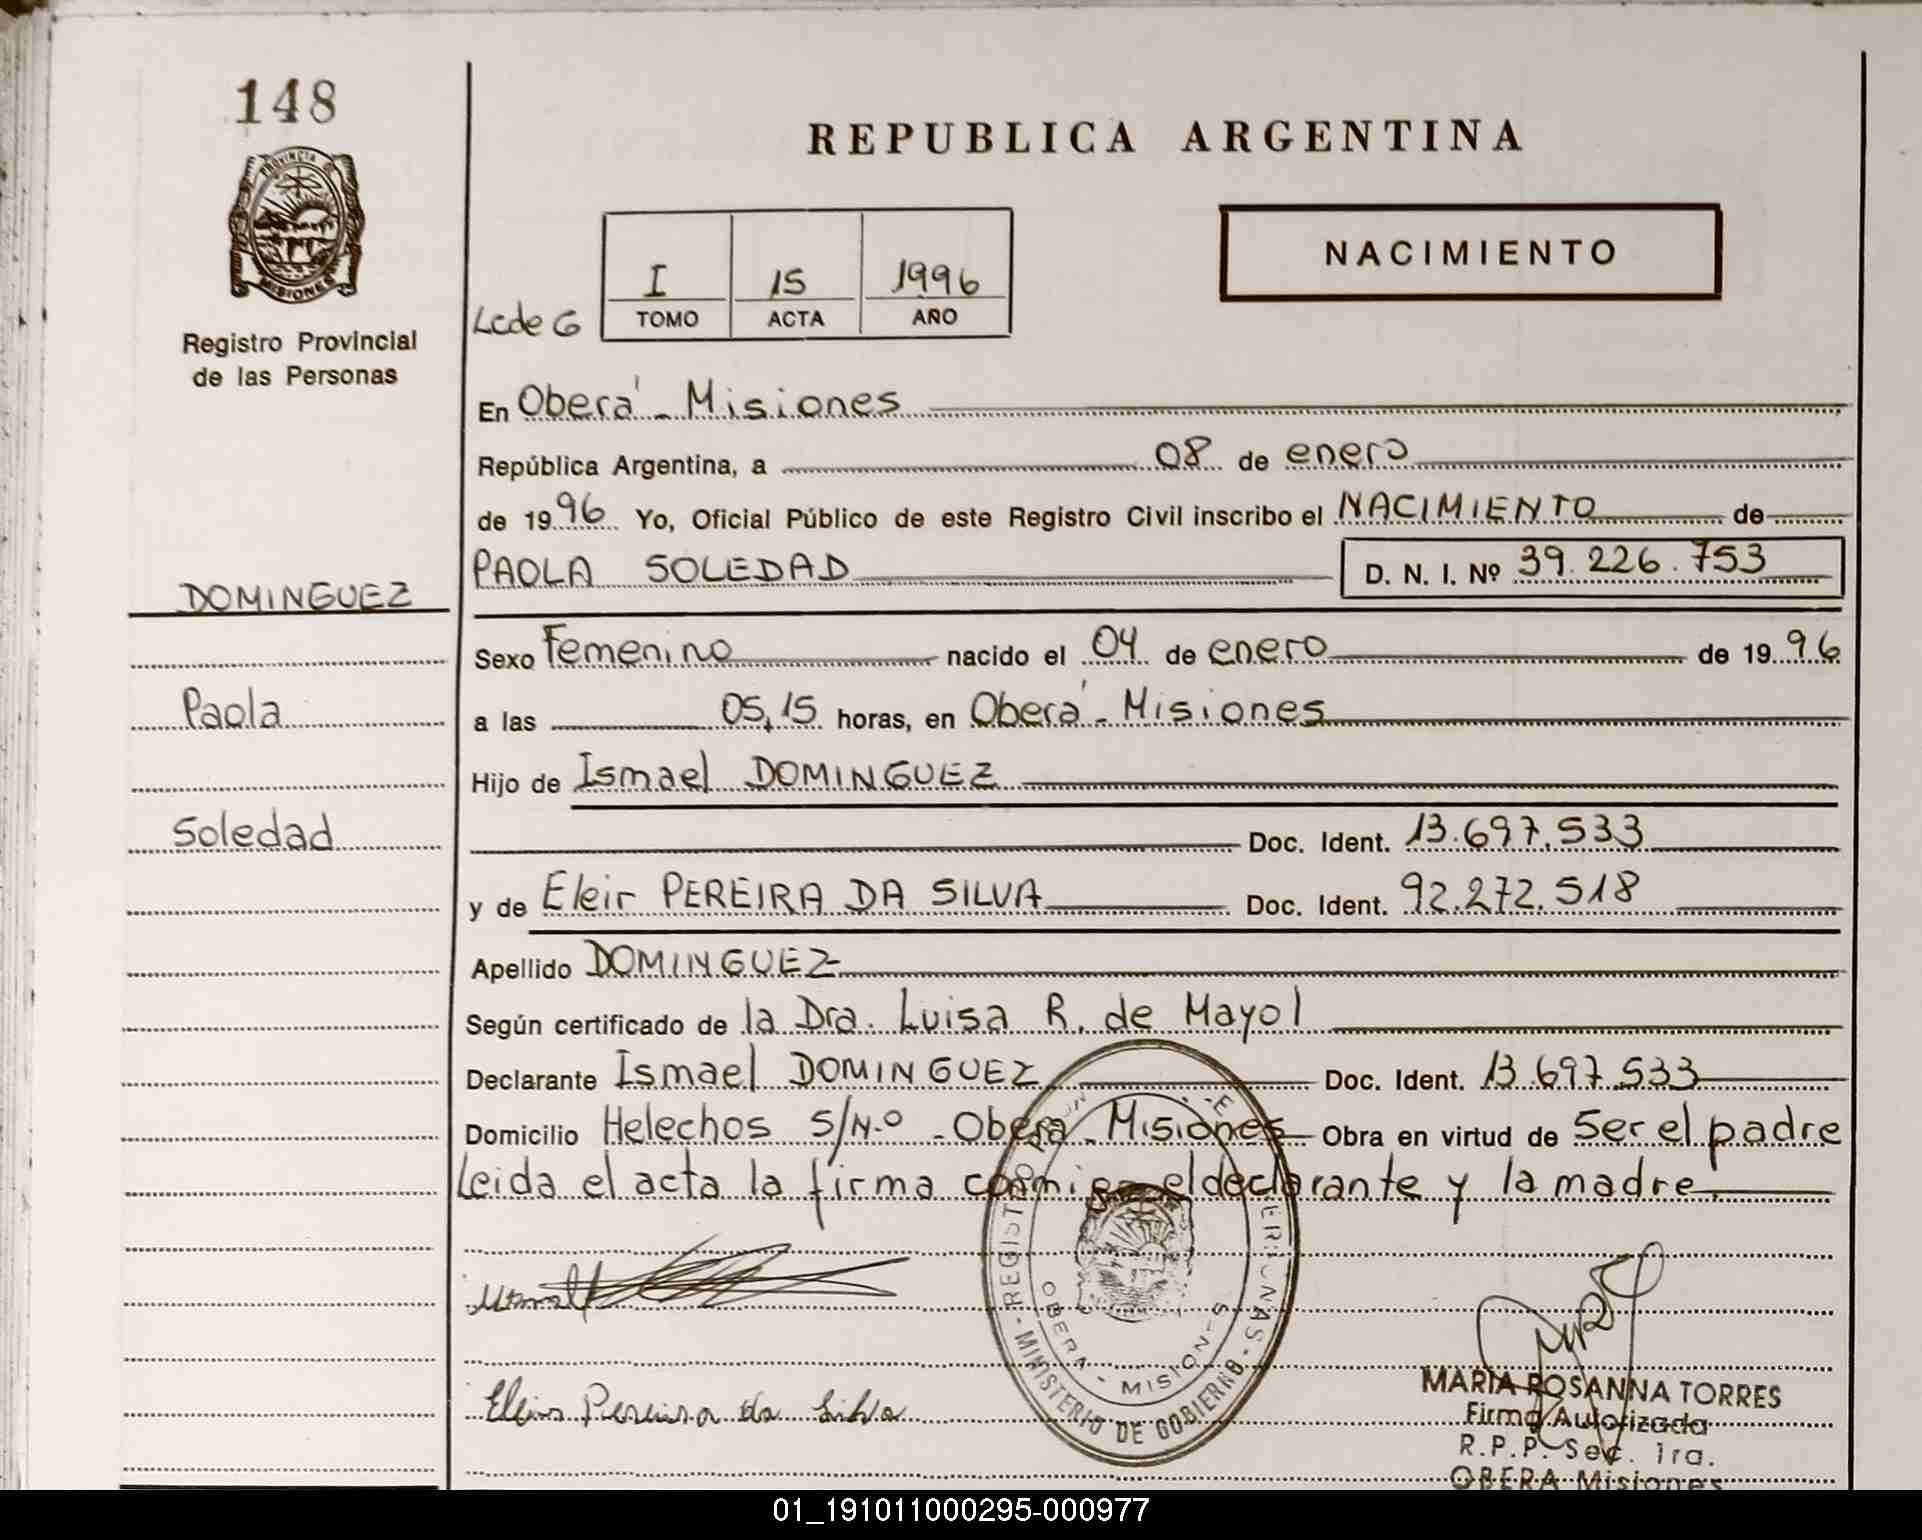 148
PROVINCIA DE
MISIONES
Registro Provincial
de las Personas
DOMINGUEZ
Paola
Soledad
REPUBLICA ARGENTINA
NACIMIENTO
Lcde G
I 15 1996
TOMO ACTA AÑO
En Oberá - Misiones
República Argentina, a 08 de enero
de 1996 Yo, Oficial Público de este Registro Civil inscribo el NACIMIENTO de
PAOLA SOLEDAD D. N. I. Nº 39.226.753
Sexo Femenino nacido el 04 de enero de 1996
a las 05,15 horas, en Oberá - Misiones
Hijo de Ismael DOMINGUEZ
Doc. Ident. 13.697.533
y de Eleir PEREIRA DA SILVA Doc. Ident. 92.272.518
Apellido DOMINGUEZ
Según certificado de la Dra. Luisa R. de Mayol
Declarante Ismael DOMINGUEZ Doc. Ident. 13.697.533
Domicilio Helechos S/N.º - Oberá - Misiones Obra en virtud de Ser el padre
Leida el acta la firma conmigo el declarante y la madre.
REGISTRO
MINISTERIO DE GOBIERNO
OBERA - MISIONES
Eleir Pereira da Silva
MARIA ROSANNA TORRES
Firma Autorizada
R.P.P. Sec. 1ra.
OBERA Misiones
01_191011000295-000977